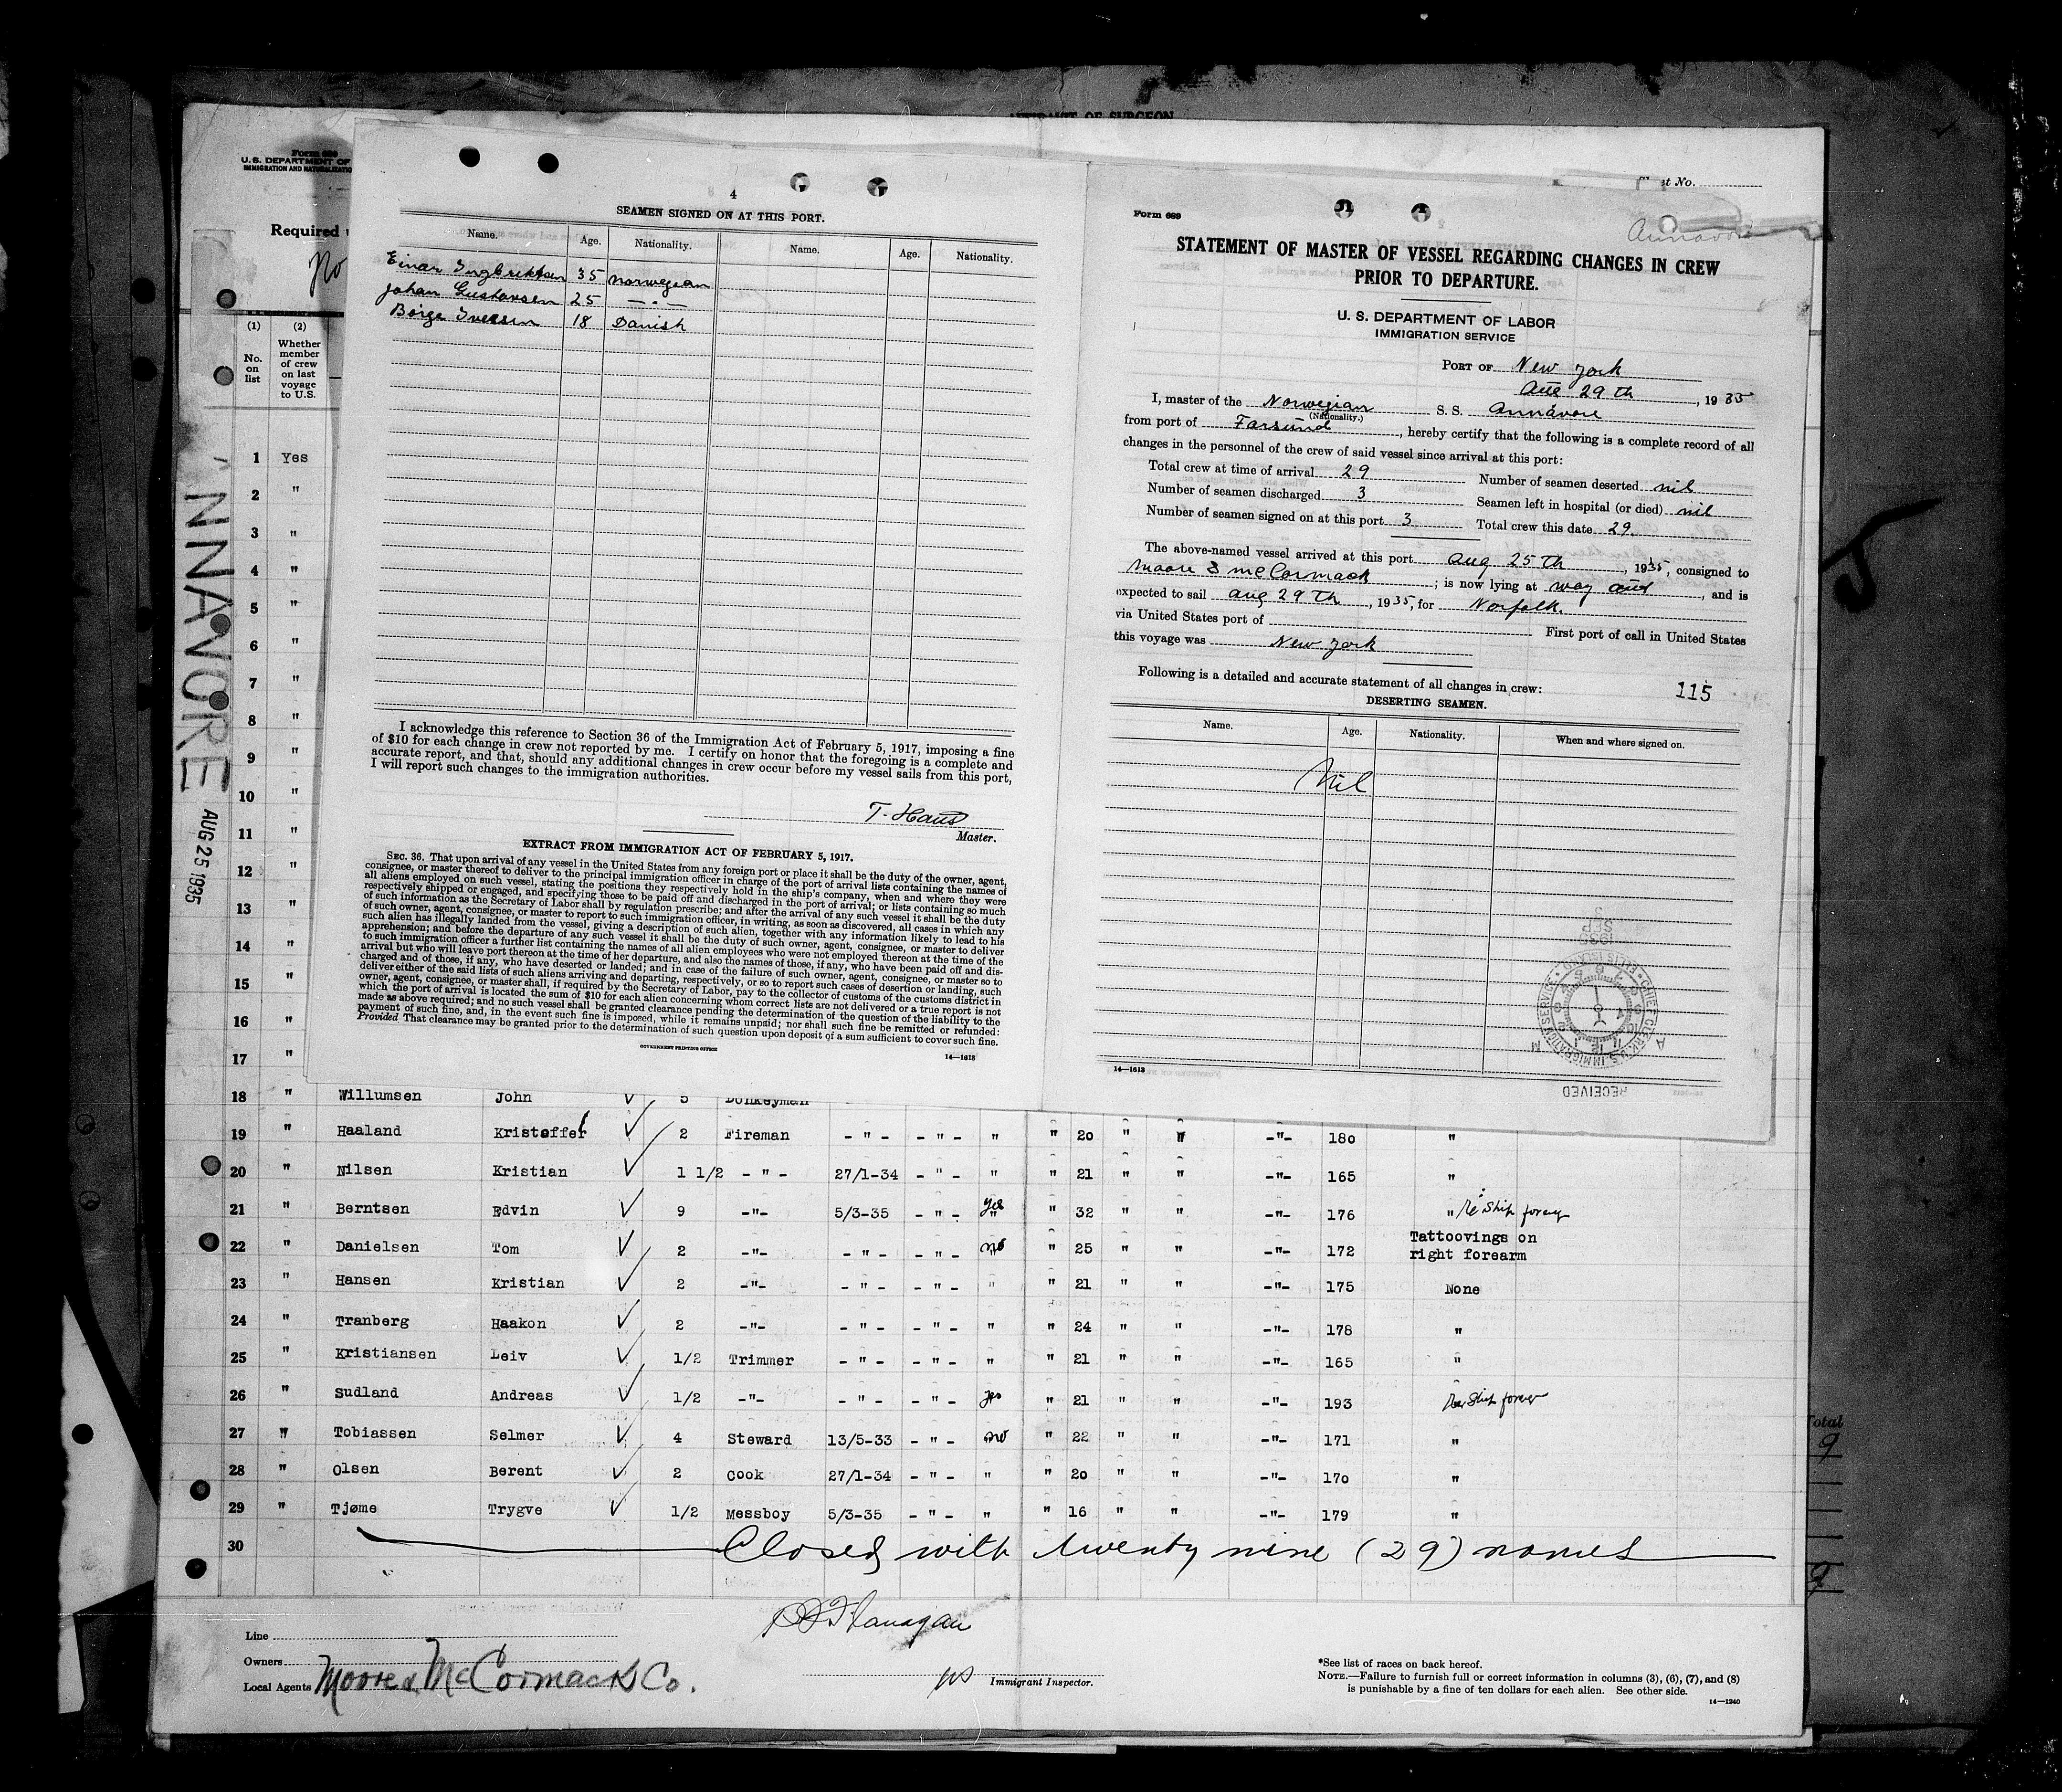 AFFIDAVIT OF SURGEON
Form 689
U. S. DEPARTMENT OF
IMMIGRATION AND NATURALIZATION
Required
(1)
No.
on
list
(2)
Whether
member
of crew
on last
voyage
to U.S.
ANNAVORE
AUG 25 1935
1 Yes
2 "
3 "
4 "
5 "
6 "
7 "
8 "
9 "
10 "
11 "
12 "
13 "
14 "
15 "
16 "
17 "
4
SEAMEN SIGNED ON AT THIS PORT.
Name. Age. Nationality. Name. Age. Nationality.
Einar Ingbriktsen 35 Norwegian
Johan Gustavsen 25 — " —
Börge Iversen 18 Danish
I acknowledge this reference to Section 36 of the Immigration Act of February 5, 1917, imposing a fine
of $10 for each change in crew not reported by me. I certify on honor that the foregoing is a complete and
accurate report, and that, should any additional changes in crew occur before my vessel sails from this port,
I will report such changes to the immigration authorities.
T. Haus
Master.
EXTRACT FROM IMMIGRATION ACT OF FEBRUARY 5, 1917.
SEC. 36. That upon arrival of any vessel in the United States from any foreign port or place it shall be the duty of the owner, agent,
consignee, or master thereof to deliver to the principal immigration officer in charge of the port of arrival lists containing the names of
all aliens employed on such vessel, stating the positions they respectively hold in the ship's company, when and where they were
respectively shipped or engaged, and specifying those to be paid off and discharged in the port of arrival; or lists containing so much
of such information as the Secretary of Labor shall by regulation prescribe; and after the arrival of any such vessel it shall be the duty
of such owner, agent, consignee, or master to report to such immigration officer, in writing, as soon as discovered, all cases in which any
such alien has illegally landed from the vessel, giving a description of such alien, together with any information likely to lead to his
apprehension; and before the departure of any such vessel it shall be the duty of such owner, agent, consignee, or master to deliver
to such immigration officer a further list containing the names of all alien employees who were not employed thereon at the time of the
arrival but who will leave port thereon at the time of her departure, and also the names of those, if any, who have been paid off and dis-
charged and of those, if any, who have deserted or landed; and in case of the failure of such owner, agent, consignee, or master so to
deliver either of the said lists of such aliens arriving and departing, respectively, or so to report such cases of desertion or landing, such
owner, agent, consignee, or master, shall, if required by the Secretary of Labor, pay to the collector of customs of the customs district in
which the port of arrival is located the sum of $10 for each alien concerning whom correct lists are not delivered or a true report is not
made as above required; and no such vessel shall be granted clearance pending the determination of the question of the liability to the
payment of such fine, and, in the event such fine is imposed, while it remains unpaid; nor shall such fine be remitted or refunded:
Provided That clearance may be granted prior to the determination of such question upon deposit of a sum sufficient to cover such fine.
GOVERNMENT PRINTING OFFICE 14—1613
List No.
Form 689
Annavore
STATEMENT OF MASTER OF VESSEL REGARDING CHANGES IN CREW
PRIOR TO DEPARTURE.
U. S. DEPARTMENT OF LABOR
IMMIGRATION SERVICE
PORT OF New York
Aug 29th, 1935
I, master of the Norwegian S. S. Annavore
(Nationality.)
from port of Farsund, hereby certify that the following is a complete record of all
changes in the personnel of the crew of said vessel since arrival at this port:
Total crew at time of arrival 29 Number of seamen deserted nil
Number of seamen discharged 3 Seamen left in hospital (or died) nil
Number of seamen signed on at this port 3 Total crew this date 29.
The above-named vessel arrived at this port Aug 25th, 1935, consigned to
Moore & McCormack; is now lying at way and, and is
expected to sail Aug 29th, 1935, for Norfolk.
via United States port of First port of call in United States
this voyage was New York
Following is a detailed and accurate statement of all changes in crew: 115
DESERTING SEAMEN.
Name. Age. Nationality. When and where signed on.
Nil
1935 SEP 3
CHIEF CLERK U. S. IMMIGRATION SERVICE • ELLIS ISLAND •
RECEIVED
14—1613
18 " Willumsen John √ 5 Donkeyman
19 " Haaland Kristoffer √ 2 Fireman - " - - " - " " 20 " " -"- 180 "
20 " Nilsen Kristian √ 1 1/2 - " - 27/1-34 - " - " " 21 " " -"- 165 "
21 " Berntsen Edvin √ 9 -"- 5/3-35 - " - yes " 32 " " -"- 176 " Re Ship foreign
22 " Danielsen Tom √ 2 -"- - " - - " - no " 25 " " -"- 172 Tattoovings on
right forearm
23 " Hansen Kristian √ 2 -"- - " - - " - " " 21 " " -"- 175 None
24 " Tranberg Haakon √ 2 -"- - " - - " - " " 24 " " -"- 178 "
25 " Kristiansen Leiv √ 1/2 Trimmer - " - - " - " " 21 " " -"- 165 "
26 " Sudland Andreas √ 1/2 -"- - " - - " - yes " 21 " " -"- 193 Re Ship foreign
27 " Tobiassen Selmer √ 4 Steward 13/5-33 - " - no " 22 " " -"- 171 "
28 " Olsen Berent √ 2 Cook 27/1-34 - " - " " 20 " " -"- 170 "
29 " Tjøme Trygve √ 1/2 Messboy 5/3-35 - " - " " 16 " " -"- 179 "
30 Closed with twenty nine (29) names
Total
9
9
Flanagan
Line
Owners
Local Agents Moore & McCormack Co.
Immigrant Inspector.
*See list of races on back hereof.
NOTE.—Failure to furnish full or correct information in columns (3), (6), (7), and (8)
is punishable by a fine of ten dollars for each alien. See other side.
14—1240